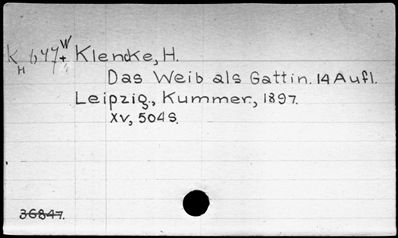 Klencke, H.
Das Weib als Gattin. 14 Aufl.
Leipzig, Kummer, 1897.
XV, 504 S.
36847.